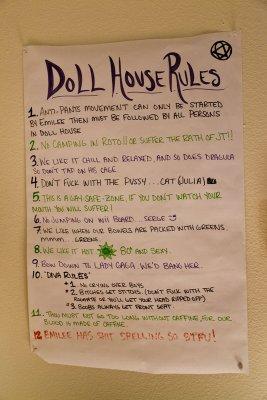 DOLL HOUSE RULES
1. ANTI-PANTS MOVEMENT CAN ONLY BE STARTED
BY EMILEE THEN MUST BE FOLLOWED BY ALL PERSONS
IN DOLL HOUSE
2. NO CAMPING IN ROTO!! OR SUFFER THE RATH OF JT!!
3. WE LIKE IT CHILL AND RELAXED, AND SO DOES DRACULA
SO DON'T TAP ON HIS CAGE
4. DON'T FUCK WITH THE PUSSY...CAT (JULIA)
5. THIS IS A GAY SAFE-ZONE, IF YOU DON'T WATCH YOUR
MOUTH YOU WILL SUFFER!
6. NO JUMPING ON WII BOARD...SERGE
7. WE LIKE WHEN OUR BOWLS ARE PACKED WITH GREENS,
MMMM... GREENS
8. WE LIKE IT HOT 80° AND SEXY.
9. BOW DOWN TO LADY GAGA. WE'D BANG HER.
10. "DIVA RULES"
1. NO CRYING OVER BOYS
2. BITCHES GET STITCHES. (DON'T FUCK WITH THE
ROOMATE OR YOU'LL GET YOUR HEAD RIPPED OFF)
3. BOOBS ALWAYS GET FRONT SEAT
11. THOU MUST NOT GO TOO LONG WITHOUT CAFFINE, FOR OUR
BLOOD IS MADE OF CAFFINE.
12. EMILEE HAS SHIT SPELLING SO STFU!